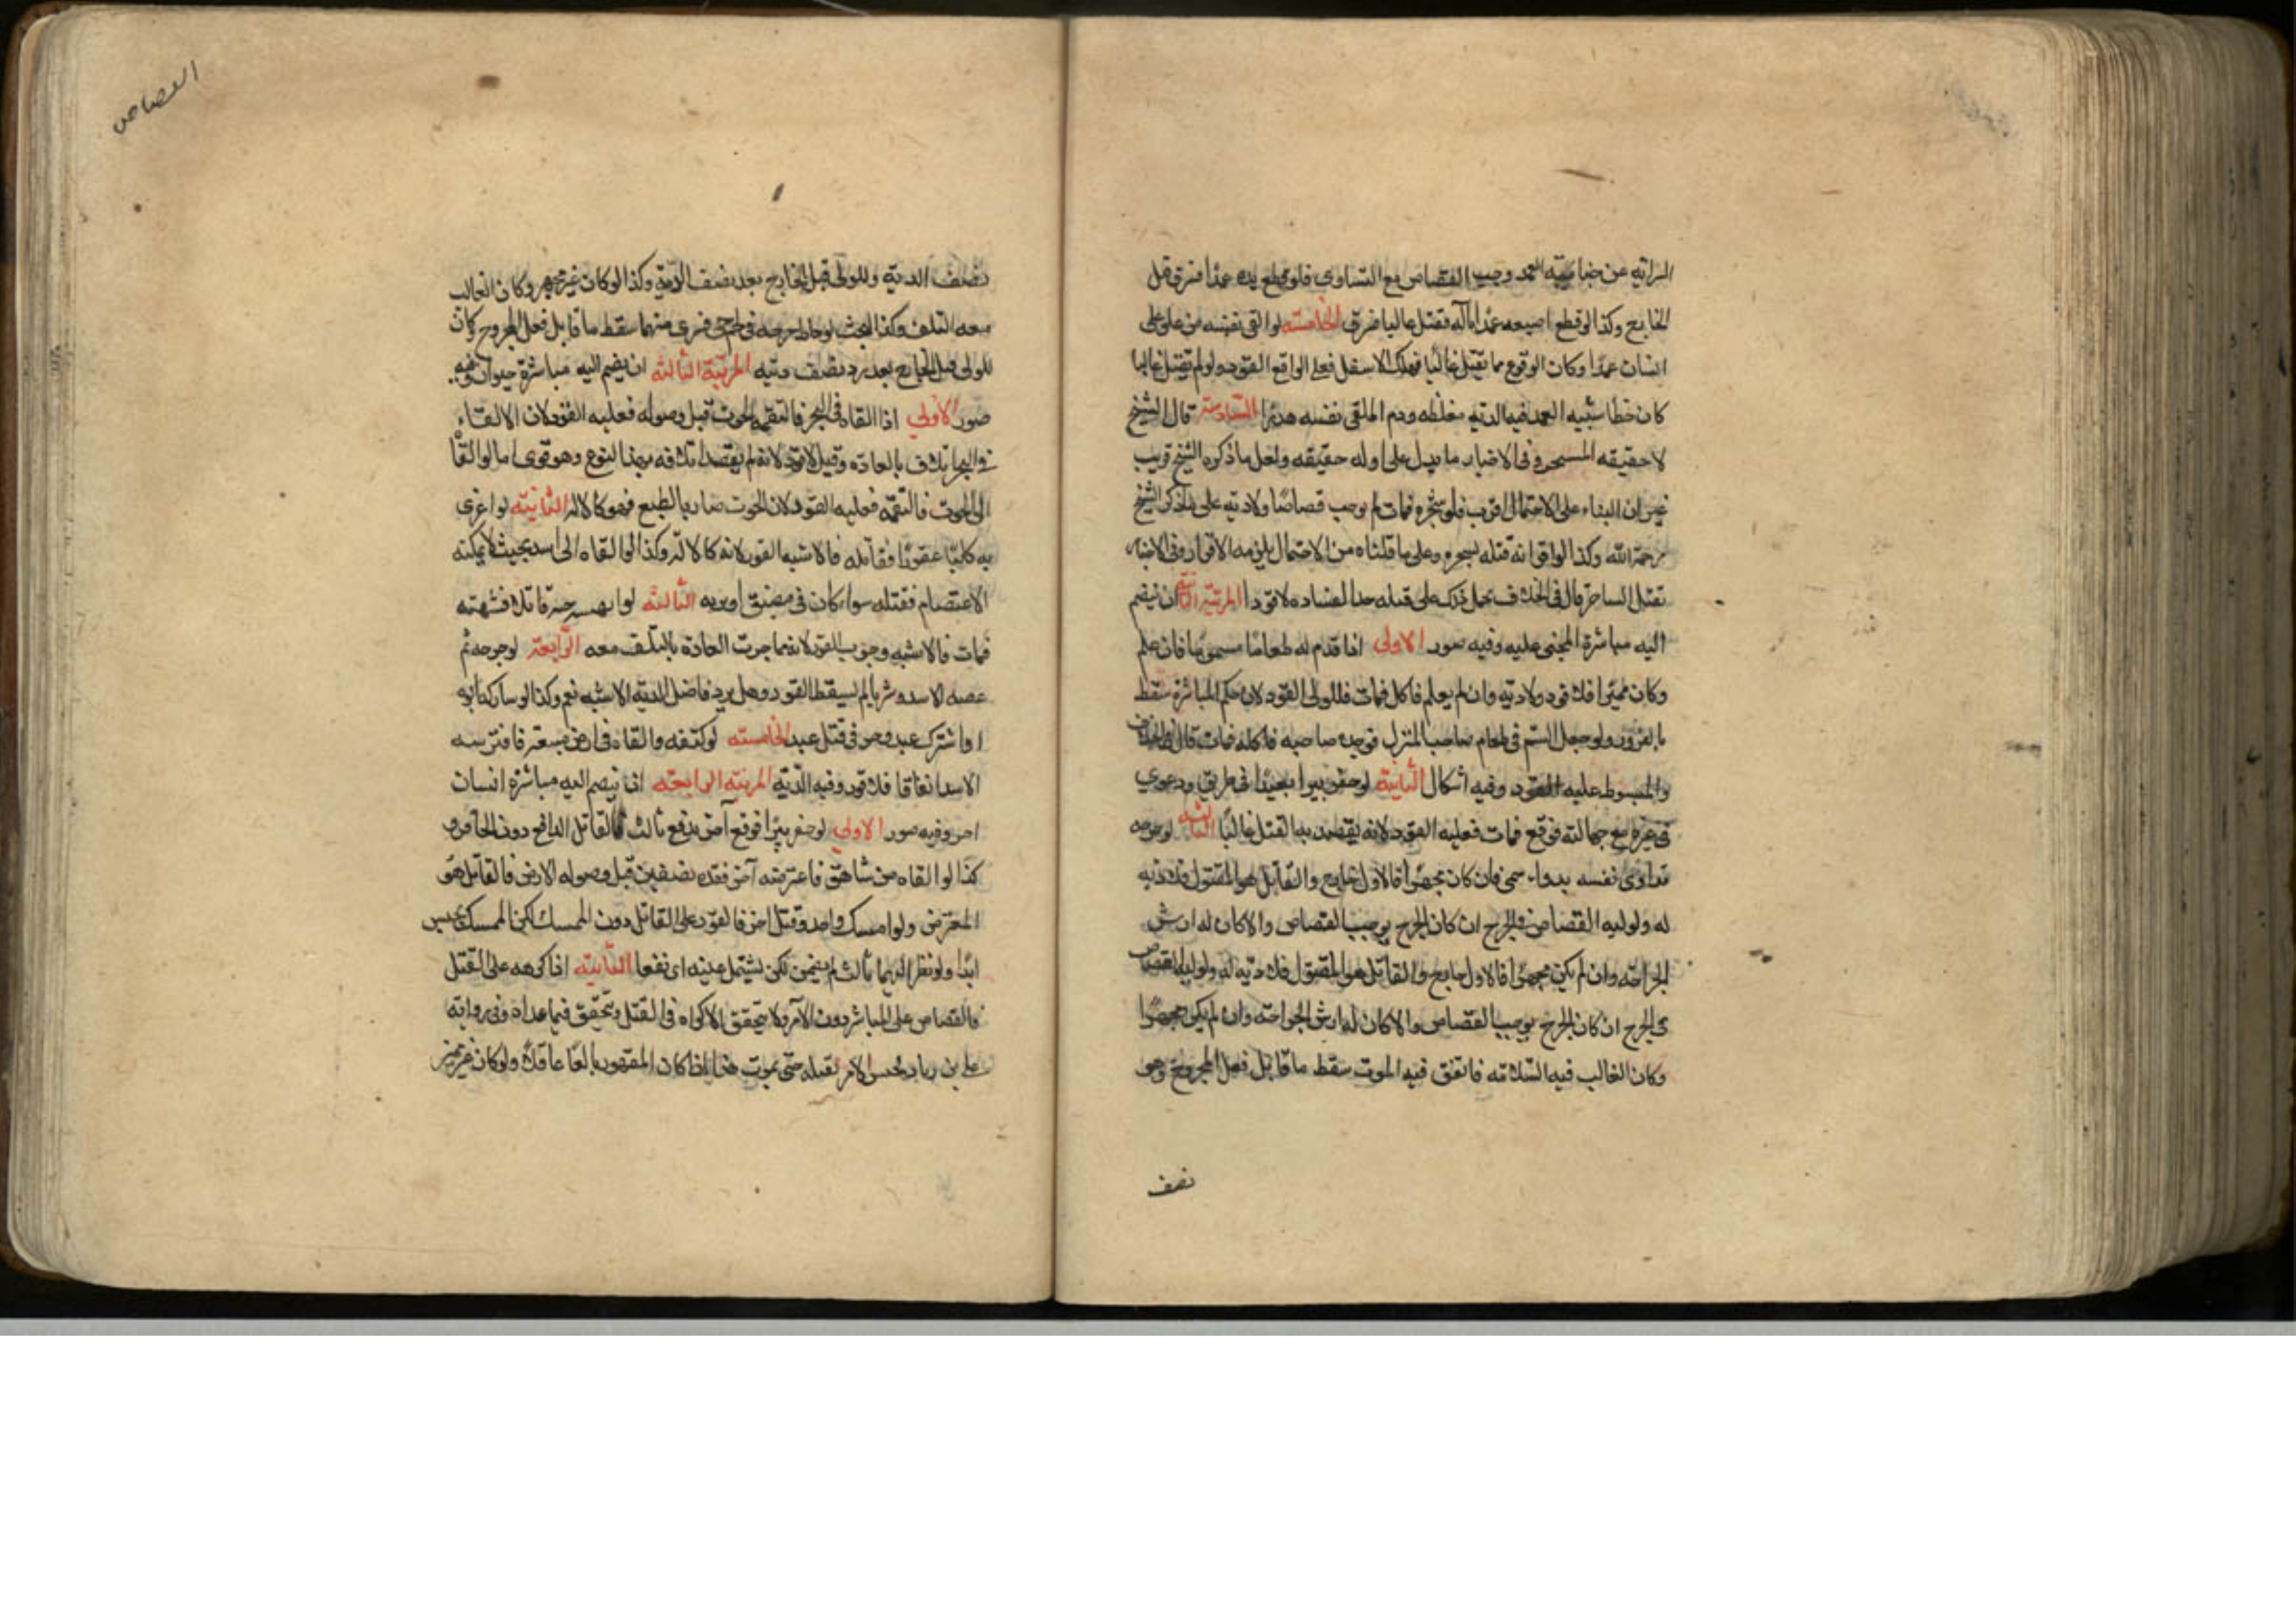 السراية عن جناية العمد وجب القصاص مع التساوي فلو قطع يده عمدا فسرى قتل
الجارح وكذا لو قطع اصبعه عمدا بآلة تقتل غالبا فسرت الخامسة لو القى نفسه من علو على
انسان عمدا وكان الوقوع مما يقتل غالبا فهلك الاسفل فعلى الواقع القود ولو لم يقتل غالبا
كان خطا شبيه العمد فيه الدية مغلظه ودم الملقى نفسه هدرا السادسة قال الشيخ
لا حقيقه للسحر وفي الاخبار ما يدل على ان له حقيقه ولعل ما ذكره الشيخ قريب
غير ان البناء على الاحتمال اقرب فلو سحره فمات لم يوجب قصاصا ولا دية على ما ذكر الشيخ
رحمة الله وكذا لو اقر انه قتله بسحره وعلى ما قلناه من الاحتمال يلزمه الاقرار وفي الاخبار
تقتل الساحر قال في الخلاف يحمل ذلك على قتله حدا لفساده لا قودا المرتبة الثانية ان ينضم
اليه مباشرة المجنى عليه وفيه صور الاولى اذا قدم له طعاما مسموما فان علم
وكان مميزا فلا قود ولا دية وان لم يعلم فاكل فمات فللولى القود لان حكم المباشرة سقط
بالغرور ولو جعل السم في طعام صاحب المنزل فوجده صاحبه فاكله فمات قال في الخلاف
والمبسوط عليه القود وفيه اشكال الثانية لو حفر بيرا بعيدا في طريق ودعوى
غيره مع جهالته فوقع فمات فعليه القود لانه يقصد به القتل غالبا الثالثة لو جرحه
فداوى نفسه بدواء سمى فان كان مجهزا فالاول جارح والقاتل هو المقتول فلا دية
له ولوليه القصاص في الجرح ان كان الجرح يوجب القصاص والا كان له ارش
الجراحة وان لم يكن مجهزا فالاول جارح والقاتل هو المقتول فلا دية له ولوليه القصاص
في الجرح ان كان الجرح يوجب القصاص والا كان له ارش الجراحة وان لم يكن مجهزا
وكان الغالب فيه السلامة فاتفق فيه الموت سقط ما قابل فعل المجروح وهو
نصف
القصاص
نصف الدية وللولى قتل الجارح بعد نصف الدية وكذا لو كان غير مجهز وكان الغالب
معه التلف وكذا البحث لو خاط جرحه في لحم حي فسرى منهما سقط ما قابل فعل المجروح وكان
للولى قتل الجارح بعد رد نصف ديته المرتبة الثالثة ان ينضم اليه مباشرة حيوان وفيه
صور الاولى اذا القاه في البحر فالتقمه الحوت قبل وصوله فعليه القود لان الالقاء
في البحر اتلاف بالعادة وقيل لا قود لانه لم يقصد اتلافه بهذا النوع وهو قوى اما لو القاه
الى الحوت فالتقمه فعليه القود لان الحوت ضار بالطبع فهو كالاله الثانية لو اغرى
به كلبا عقورا فقتله فالاشبه القود لانه كالالة وكذا لو القاه الى اسد بحيث لا يمكنه
الاعتصام فقتله سواء كان في مضيق او برية الثالثة لو انهشه حية قاتلا فنهشته
فمات فالاشبه وجوب القود لانه مما جرت العادة بالتلف معه الرابعة لو جرحه ثم
عضه الاسد وسريا لم يسقط القود وهل يرد فاضل الدية الاشبه نعم وكذا لو شاركه ابوه
او اشترك عبد وحر في قتل عبد الخامسة لو كتفه والقاه في ارض مسبعة فافترسه
الاسد اتفاقا فلا قود وفيه الدية المرتبه الرابعة ان ينضم اليه مباشرة انسان
اخر وفيه صور الاولى لو حفر بيرا فوقع آخر بدفع ثالث فالقاتل الدافع دون الحافر و
كذا لو القاه من شاهق فاعترضه آخر فقده نصفين قبل وصوله الارض فالقاتل هو
المعترض ولو امسك واحد وقتل اخر فالقود على القاتل دون الممسك لكن الممسك يحبس
ابدا ولو نظر اليهما ثالث لم يضمن لكن تسمل عينه اى تفقا الثانية اذا اكرهه على القتل
فالقصاص على المباشر دون الآمر ولا يتحقق الاكراه في القتل ويتحقق فيما عداه وفي رواية
على بن رياب يحبس الامر بقتله حتى يموت هذا اذا كان المقهور بالغا عاقلا ولو كان غير مميز